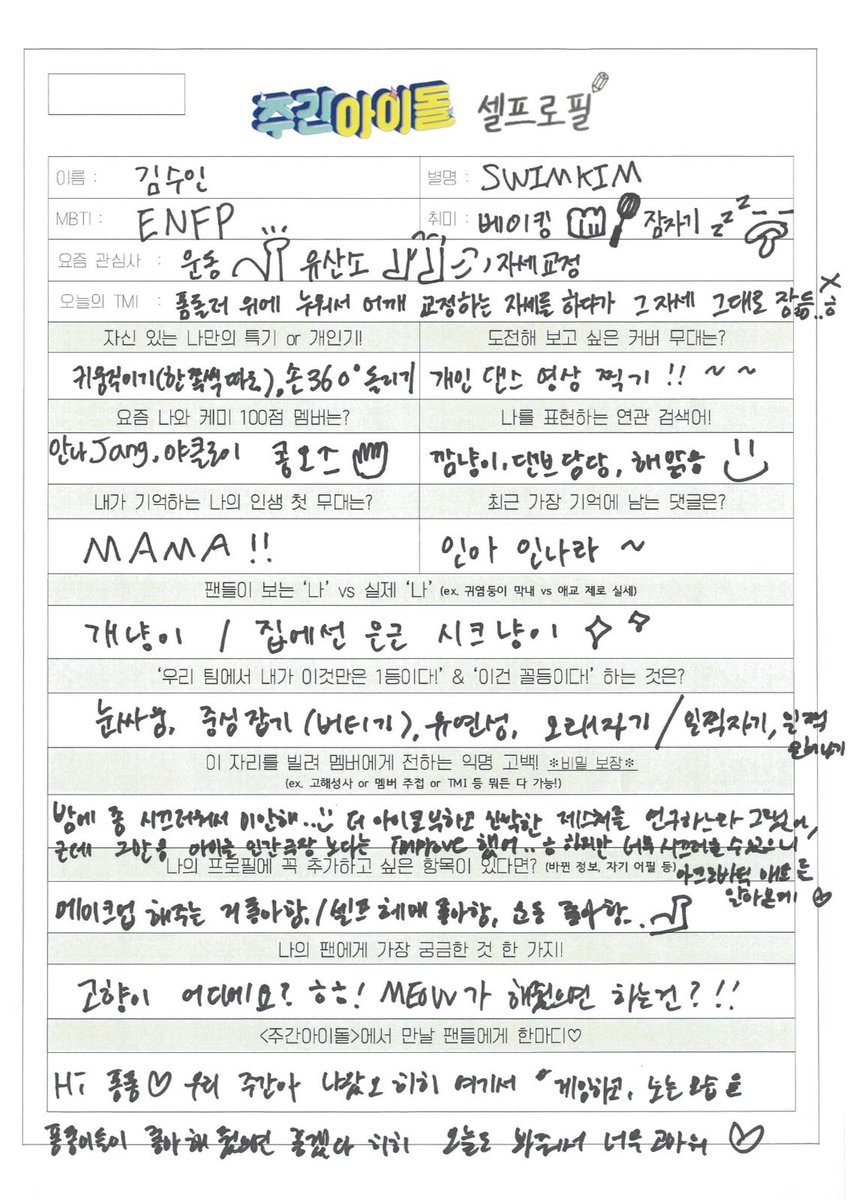 주간아이돌 셀프로필
이름 : 김수인 별명 : SWIMKIM
MBTI : ENFP 취미 : 베이킹 잠자기 zzz
요즘 관심사 : 운동 유산소 , 자세교정
오늘의 TMI : 폼롤러 위에 누워서 어깨 교정하는 자세를 하다가 그 자세 그대로 잠듦..ㅎ
자신 있는 나만의 특기 or 개인기! 도전해 보고 싶은 커버 무대는?
귀움직이기(한쪽씩 따로), 손360°돌리기 개인 댄스 영상 찍기 !! ~ ~
요즘 나와 케미 100점 멤버는? 나를 표현하는 연관 검색어!
안나Jang, 야클로이 나를 깜냥이, 단브 담당, 해맑음
내가 기억하는 나의 인생 첫 무대는? 최근 가장 기억에 남는 댓글은?
MAMA !! 인아 인나라 ~
팬들이 보는 '나' vs 실제 '나' (ex. 귀염둥이 막내 vs 애교 제로 실세)
개냥이 / 집에선 은근 시크냥이
'우리 팀에서 내가 이것만은 1등이다!' & '이건 꼴등이다!' 하는 것은?
눈싸움, 중심잡기 (버티기), 유연성, 오래자기 / 일찍자기, 일찍
일어나기
이 자리를 빌려 멤버에게 전하는 익명 고백! ※비밀 보장※
(ex. 고해성사 or 멤버 주접 or TMI 등 뭐든 다 가능!)
밤에 좀 시끄러워서 미안해.. 더 아이코닉하고 신박한 제스처를 연구하느라 그랬어,
근데 그만큼 아이들 인간극장 노다는 Improve 했어..ㅎ 하지만 너무 시끄러울 수 있으니
나의 프로필에 꼭 추가하고 싶은 항목이 있다면? (바뀐 정보, 자기 어필 등)
메이크업 해주는 거 좋아함. / 셀프 헤메 좋아함, 운동 좋아함..
나의 팬에게 가장 궁금한 것 한 가지!
고향이 어디에요? ㅎㅎ! MEOW가 해줬으면 하는건?!!
<주간아이돌>에서 만날 팬들에게 한마디♡
Hi 퐁퐁♡ 우리 주간아 나왔오 히히 여기서 게임하고, 노는 모습을
퐁퐁이들이 좋아해 줬으면 좋겠다 히히 오늘도 봐줘서 너무 고마워 ♡